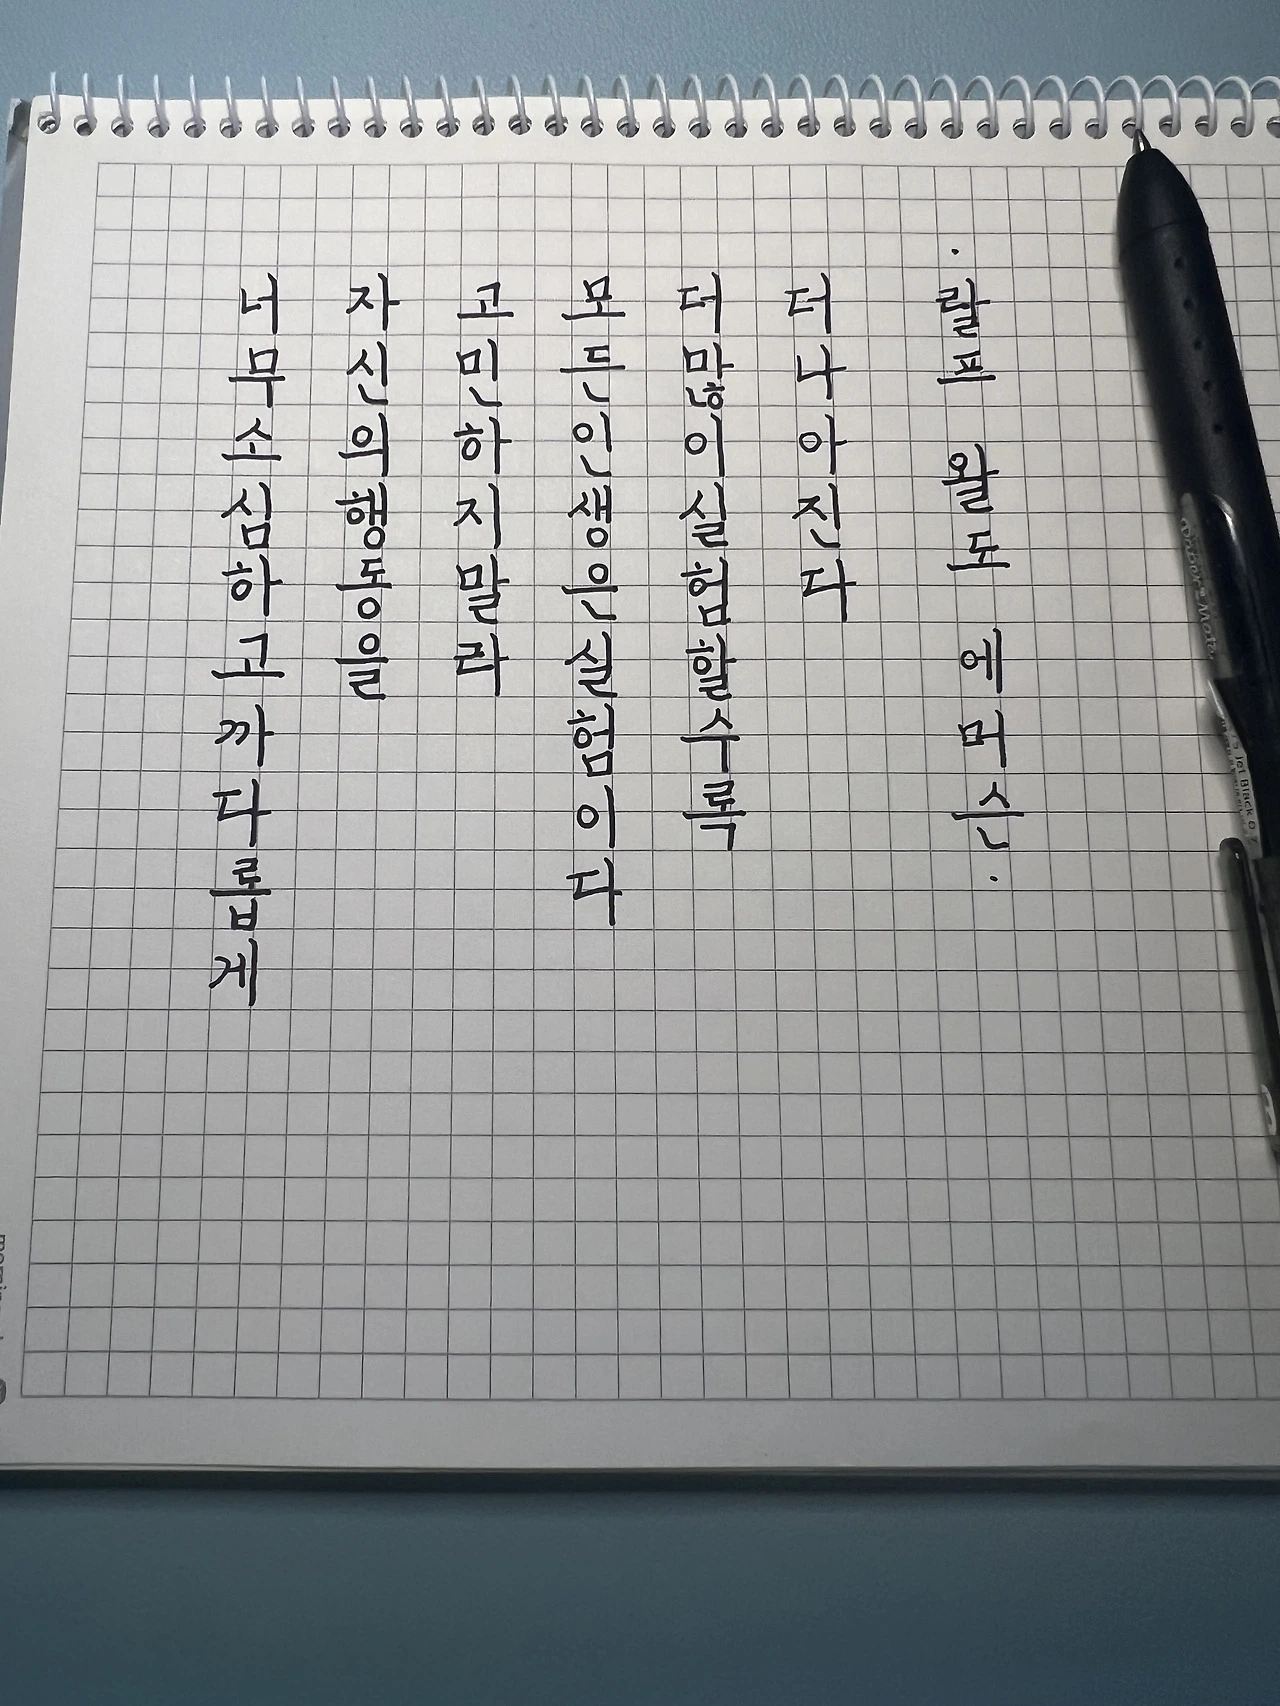 너무소심하고까다롭게
자신의행동을
고민하지말라
모든인생은실험이다
더많이실험할수록
더나아진다
·랄프 왈도 에머슨·
Paper Mate
Jet Black 0.7